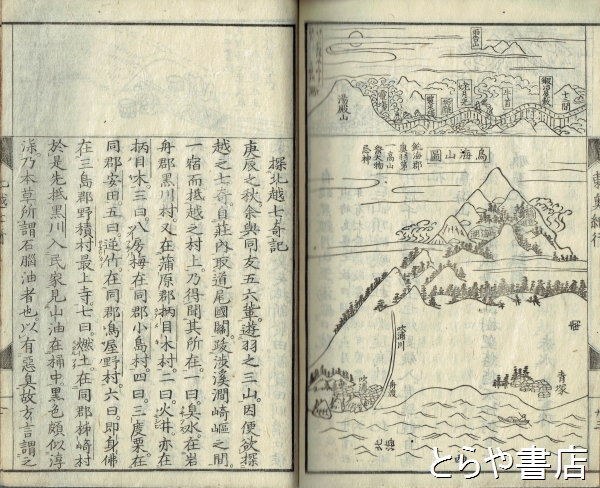 東奥紀行
月山
湯殿山
牛首
十二間
鳥海山圖
飽海郡
一高山
吹浦川
吹浦
青塚
北
探北越七奇記
庚辰之秋余與同友五六輩遊羽之三山因便欲探
越之七奇自莊內取道尾國關跋涉溪澗崎嶇之間
一宿而抵越之村上乃得聞其所在一曰臭水在岩
舟郡黑川村又在蒲原郡柄目木村二曰火井亦在
柄目木三曰八房梅在同郡小島村四曰三度栗在
同郡安田五曰逆竹在同郡鳥屋野村六曰即身佛
在三島郡野積村最上寺七曰燃土在同郡柿崎村
於是先抵黑川入民家見山油在桶中黑色頗似淳
漆乃本草所謂石腦油者也以有惡臭故方言謂之
とらや書店